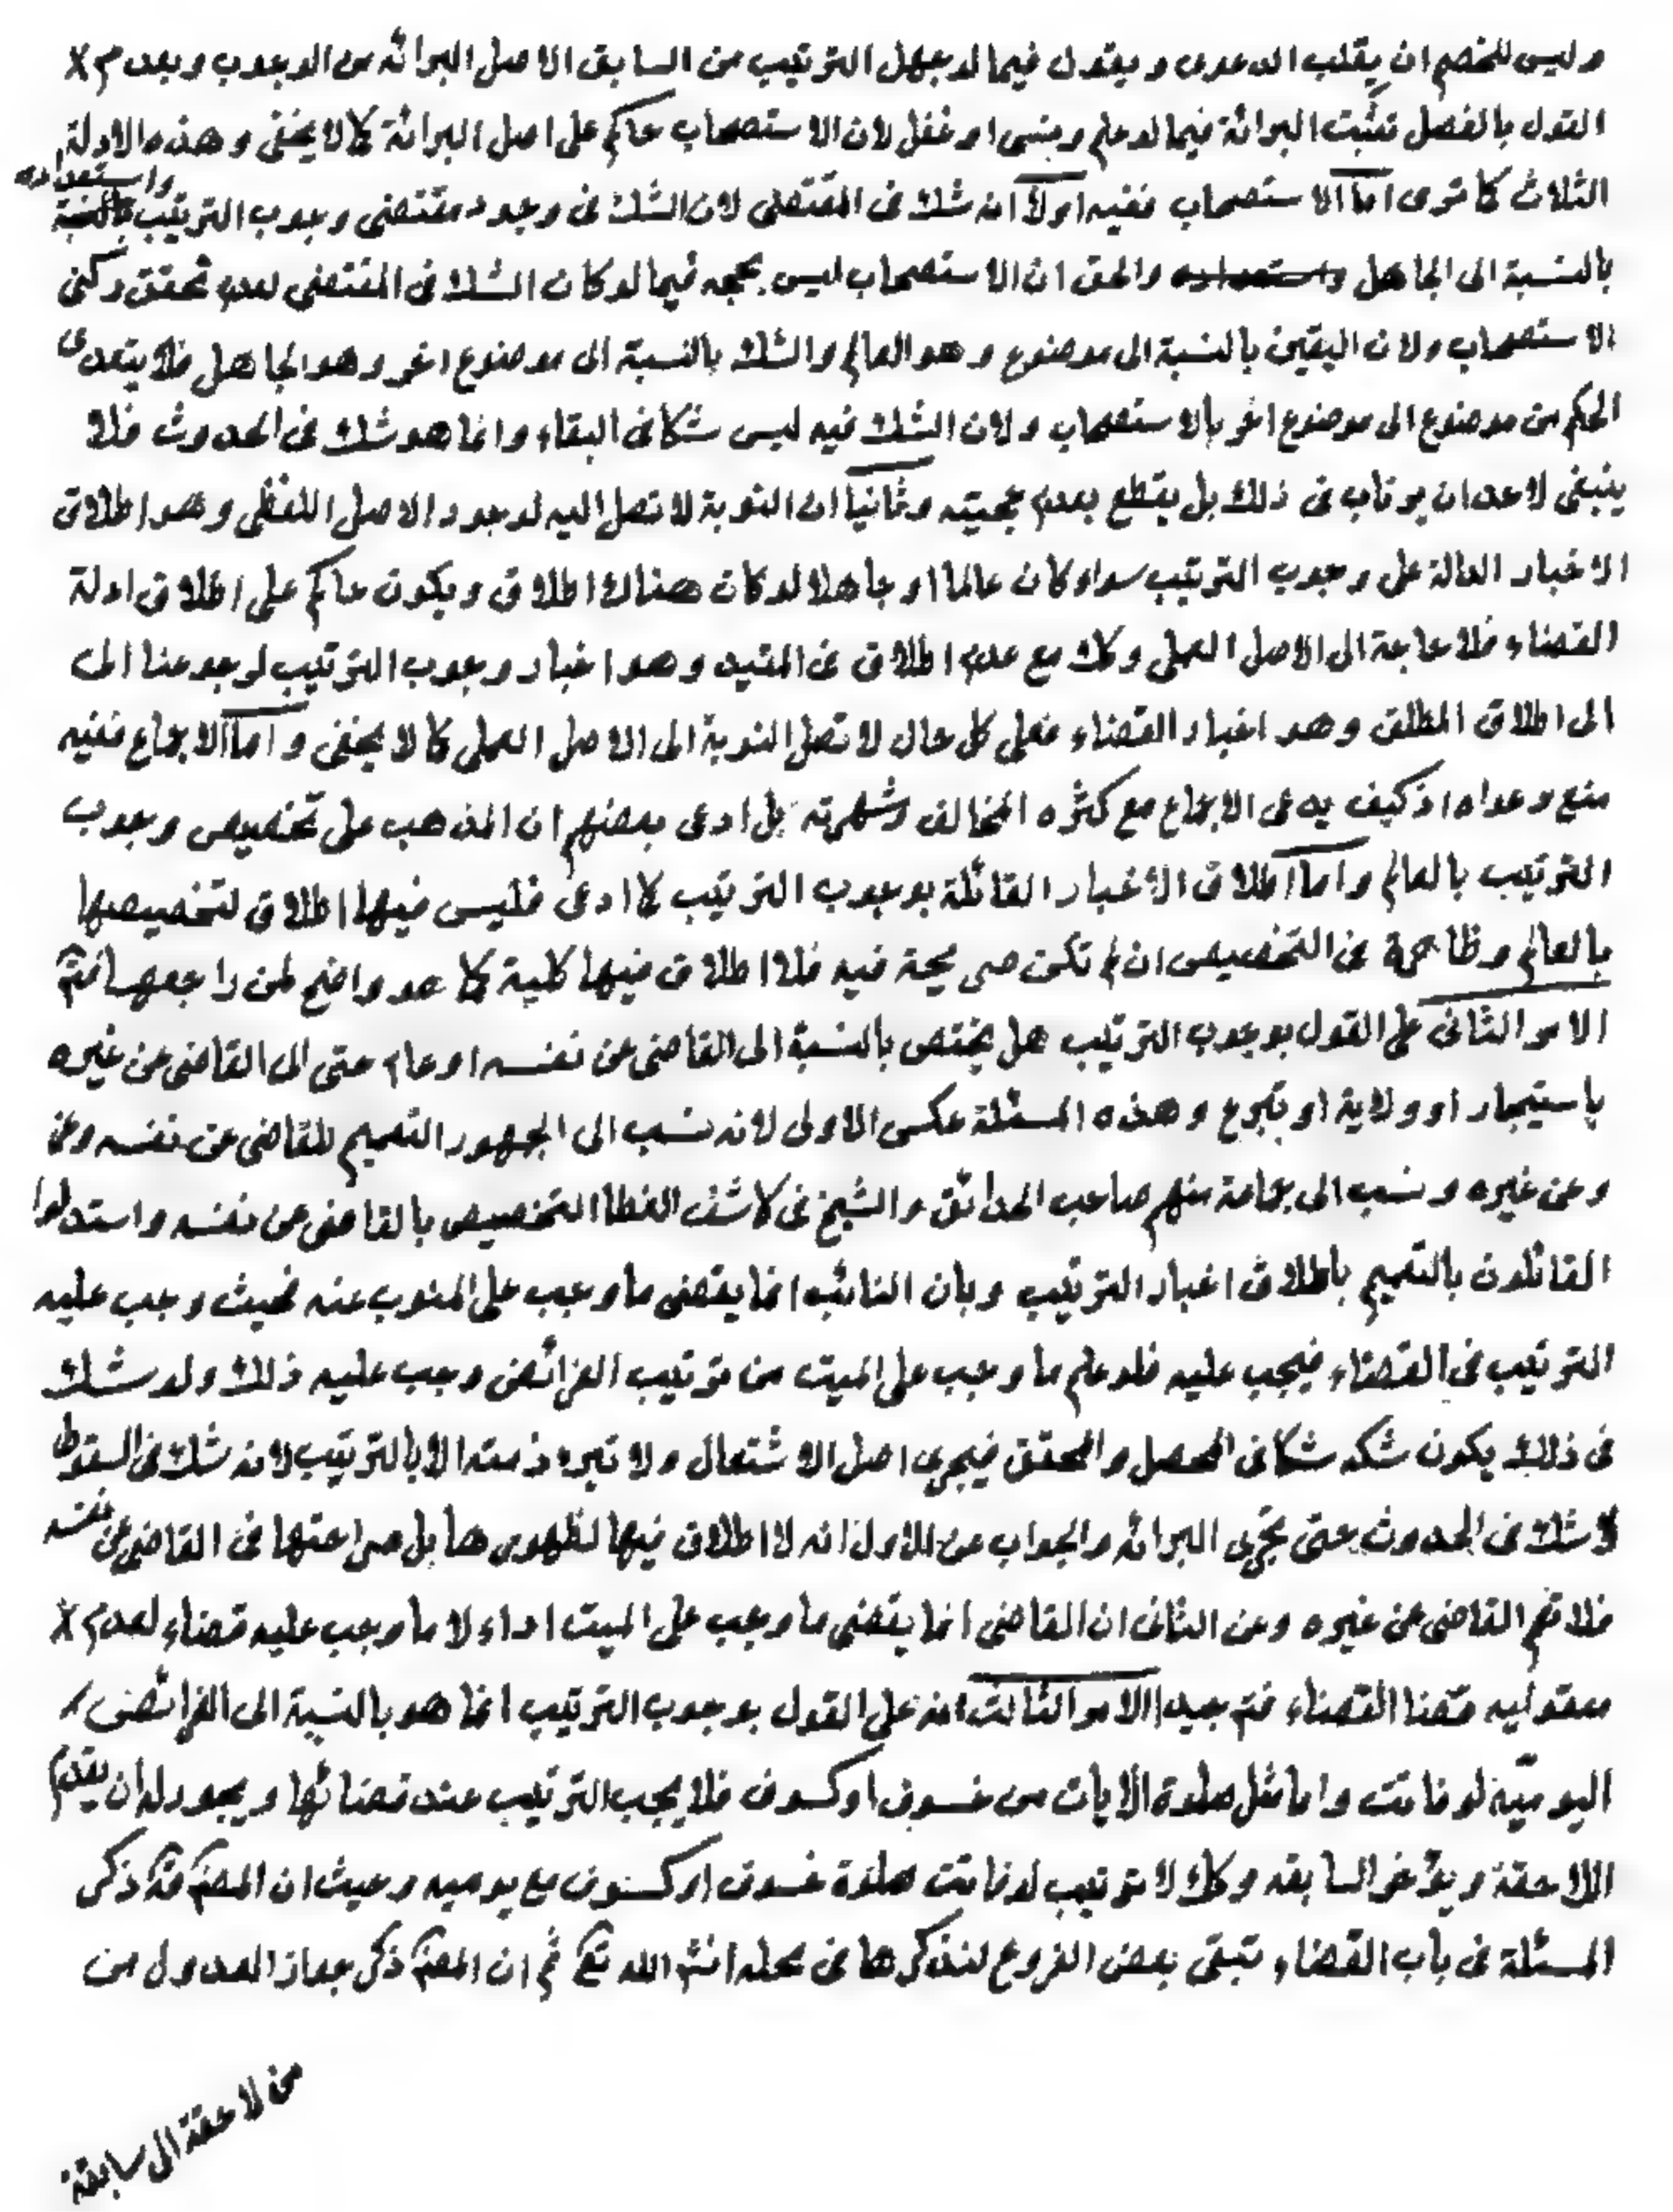 وليس للخصم ان يقلب الدعوى ويقول فيما لو جهل الترتيب من السابق الاصل البرائه من الوجوب وبعدم x
القول بالفصل تثبت البرائة فيما لو علم ونسى او غفل لان الاستصحاب حاكم على اصل البرائة كما لا يخفى وهذه الادلة
الثلاث كما ترى اما الاستصحاب ففيه اولا انه شك فى المقتضى لان الشك فى وجود مقتضى وجوب الترتيب واستعداده
بالنسبة الى الجاهل والحق ان الاستصحاب ليس بحجه فيما لو كان الشك فى المقتضى لعدم تحقق ركنى
الاستصحاب ولان اليقين بالنسبة الى موضوع وهو العالم والشك بالنسبة الى موضوع اخر وهو الجاهل فلا يتعدى
الحكم من موضوع الى موضوع اخر بالاستصحاب ولان الشك فيه ليس شكا فى البقاء وانما هو شك فى الحدوث فلا
ينبغى لاحد ان يرتاب فى ذلك بل يقطع بعدم حجيته وثانيا ان النوبة لا تصل اليه لوجود الاصل اللفظى وهو اطلاق
الاخبار الدالة على وجوب الترتيب سواء كان عالما او جاهلا لو كان هناك اطلاق ويكون حاكم على اطلاق ادلة
القضاء فلا حاجة الى الاصل العملى وكك مع عدم اطلاق فى المقيد وهو اخبار وجوب الترتيب لرجوعنا الى
الى اطلاق المطلق وهو اخبار القضاء فعلى كل حال لا تصل النوبة الى الاصل العملى كما لا يخفى واما الاجماع ففيه
منع دعواه اذ كيف يدعى الاجماع مع كثره المخالف وشهرته بل ادعى بعضهم ان المذهب على تخصيص وجوب
الترتيب بالعالم واما اطلاق الاخبار القائلة بوجوب الترتيب كما ادعى فليس فيها اطلاق لتخصيصها
بالعالم وظاهرة فى التخصيص ان لم تكن صريحة فيه فلا اطلاق فيها كلية كما هو واضح لمن راجعها
الامر الثانى على القول بوجوب الترتيب هل يختص بالنسبة الى القاضى عن نفسه او عام حتى الى القاضى عن غيره
باستيجار او ولاية او تبرع وهذه المسئلة عكس الاولى لانه نسب الى الجمهور التعميم للقاضى عن نفسه وعن
وعن غيره ونسب الى جماعة منهم صاحب الحدائق والشيخ فى كاشف الغطا التخصيص بالقاضى عن نفسه واستدلوا
القائلون بالتعميم باطلاق اخبار الترتيب وبان النائب انما يقضى ما وجب على المنوب عنه فحيث وجب عليه
الترتيب فى القضاء فيجب عليه فلو علم ما وجب على الميت من ترتيب الفرائض وجب عليه ذلك ولو شك
فى ذلك يكون شكه شكا فى المحصل والمحقق فيجرى اصل الاشتغال ولا تبرء ذمته الا بالترتيب لانه شك فى السقوط
لا شك فى الحدوث حتى تجرى البرائه والجواب عن الاول انه لا اطلاق فيها لظهورها بل صراحتها فى القاضى عن نفسه
فلا تعم القاضى عن غيره وعن الثانى ان القاضى انما يقضى ما وجب على الميت اداء لا ما وجب عليه قضاء لعدم x
معقوليه قضا القضاء فتم جيدا الامر الثالث انه على القول بوجوب الترتيب انما هو بالنسبة الى الفرائض
اليوميّة لو فاتت واما مثل صلوة الايات من خسوف او كسوف فلا يجب الترتيب عند قضائها ويجوز له ان يقدم
اللاحقة ويؤخر السابقه وكك لا ترتيب لو فاتت صلوة خسوف او كسوف مع يوميه وحيث ان المصنف ذكر
المسئلة فى باب القضاء تبقى بعض الفروع لنذكرها فى محله انشاء الله تع ثم ان المصنف ذكر جواز العدول من
من لاحقة الى سابقة